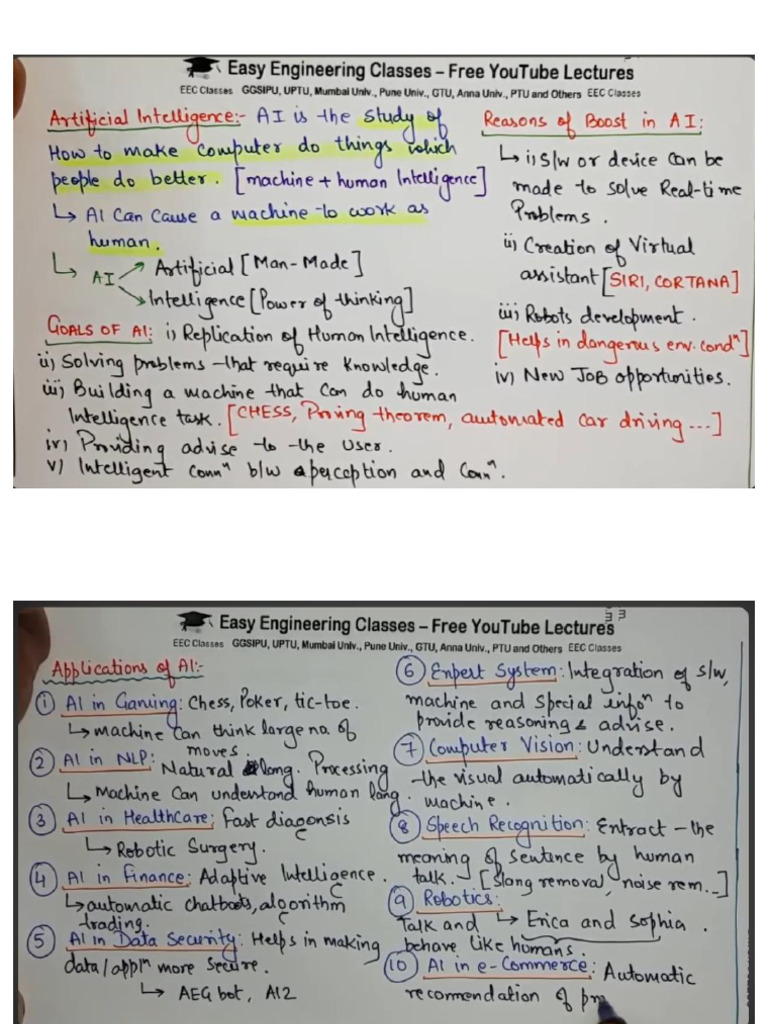 Easy Engineering Classes – Free YouTube Lectures
EEC Classes GGSIPU, UPTU, Mumbai Univ., Pune Univ., GTU, Anna Univ., PTU and Others EEC Classes
Artificial Intelligence:- AI is the study of
How to make computer do things which
people do better. [machine + human Intelligence]
↳ AI Can Cause a machine to work as
human.
↳ AI
Artificial [Man-Made]
Intelligence [Power of thinking]
GOALS OF AI: i) Replication of Human Intelligence.
ii) Solving problems that require knowledge.
iii) Building a machine that can do human
Intelligence task. [CHESS, Proving theorem, automated car driving ...]
iv) Providing advise to the user.
v) Intelligent Connⁿ b/w perception and Connⁿ.
Reasons of Boost in AI:
↳ i) S/w or device can be
made to solve Real-time
Problems.
ii) Creation of Virtual
assistant [SIRI, CORTANA]
iii) Robots development.
[Helps in dangerous env. condⁿ]
iv) New JOB opportunities.
Easy Engineering Classes – Free YouTube Lectures
EEC Classes GGSIPU, UPTU, Mumbai Univ., Pune Univ., GTU, Anna Univ., PTU and Others EEC Classes
Applications of AI:-
1 AI in Gaming: Chess, Poker, tic-toe.
↳ machine can think large no. of
moves.
2 AI in NLP: Natural lang. Processing
↳ Machine can understand human lang.
3 AI in Healthcare: Fast diagonsis
↳ Robotic Surgery.
4 AI in Finance: Adaptive Intelligence.
↳ automatic chatbots, algorithm
trading.
5 AI in Data Security: Helps in making
data/applⁿ more secure.
↳ AEG bot, AI2
6 Expert System: Integration of S/w,
machine and special infoⁿ to
provide reasoning & advise.
7 Computer Vision: Understand
the visual automatically by
machine.
8 Speech Recognition: Extract the
meaning of sentence by human
talk. [Slang removal, noise rem...]
9 Robotics:
↳ Erica and Sophia.
Talk and
behave like humans.
10 AI in e-Commerce: Automatic
recommendation of